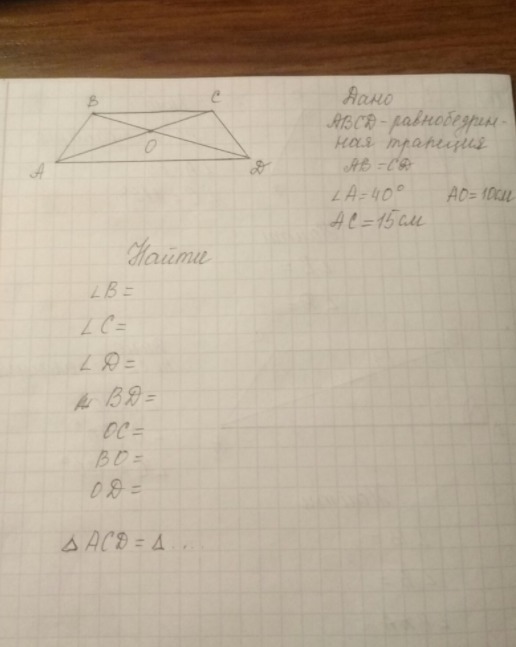 B C
O
A D
Дано
ABCD - равнобедрен-
ная трапеция
AB = CD
∠A = 40° AO = 10см
AC = 15см
Найти
∠B =
∠C =
∠D =
BD =
OC =
BO =
OD =
Δ ACD = Δ ...